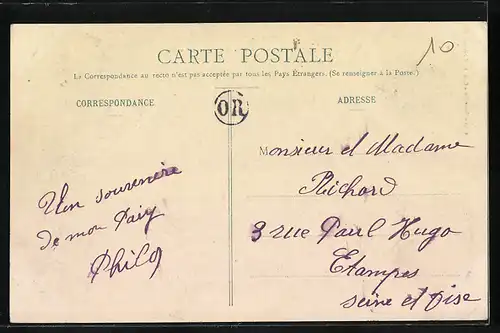 10
CARTE POSTALE
La Correspondance au recto n'est pas acceptée par tous les Pays Étrangers. (Se renseigner à la Poste.)
CORRESPONDANCE
OR
ADRESSE
Un souvenire
de mon Paiy
Monsieur et Madame
Richard
3 rue Paul Hugo
Etampes
seine et oise